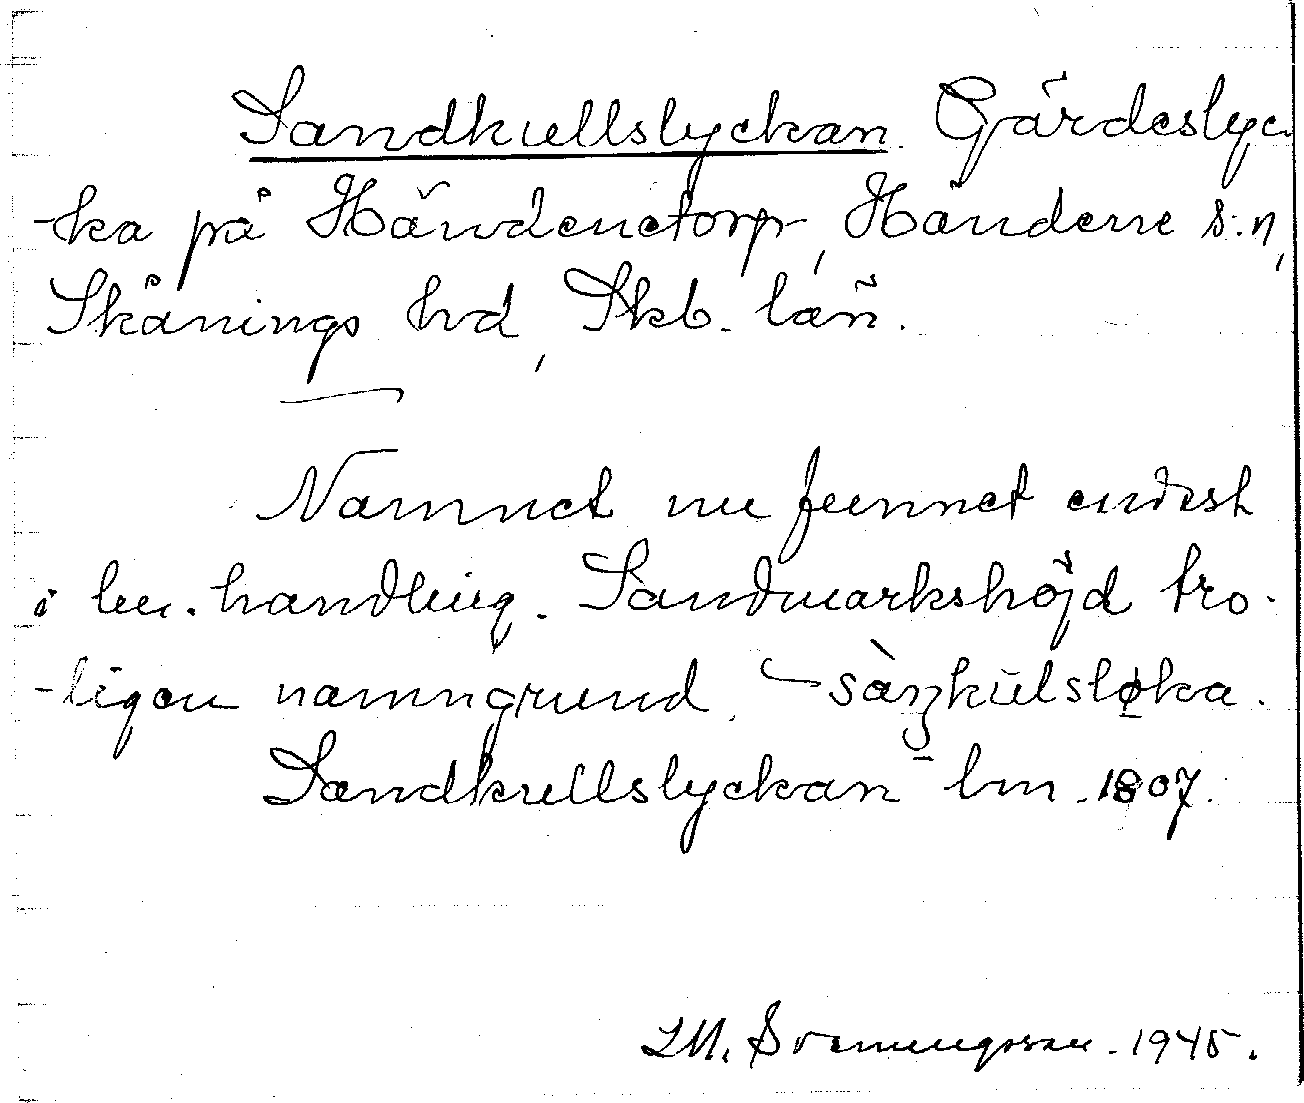 Sandkullslyckan. Gärdeslyc-
-ka på Händenetorp, Händene s:n,
Skånings hd, Skb. län.
Namnet nu funnet endast
i lm. handling. Sandmarkshöjd tro-
-ligen namngrund. sàn̥kulslø̱ka.
Sandkullslyckan lm. 1807.
I.M. Svenungsson. 1945.